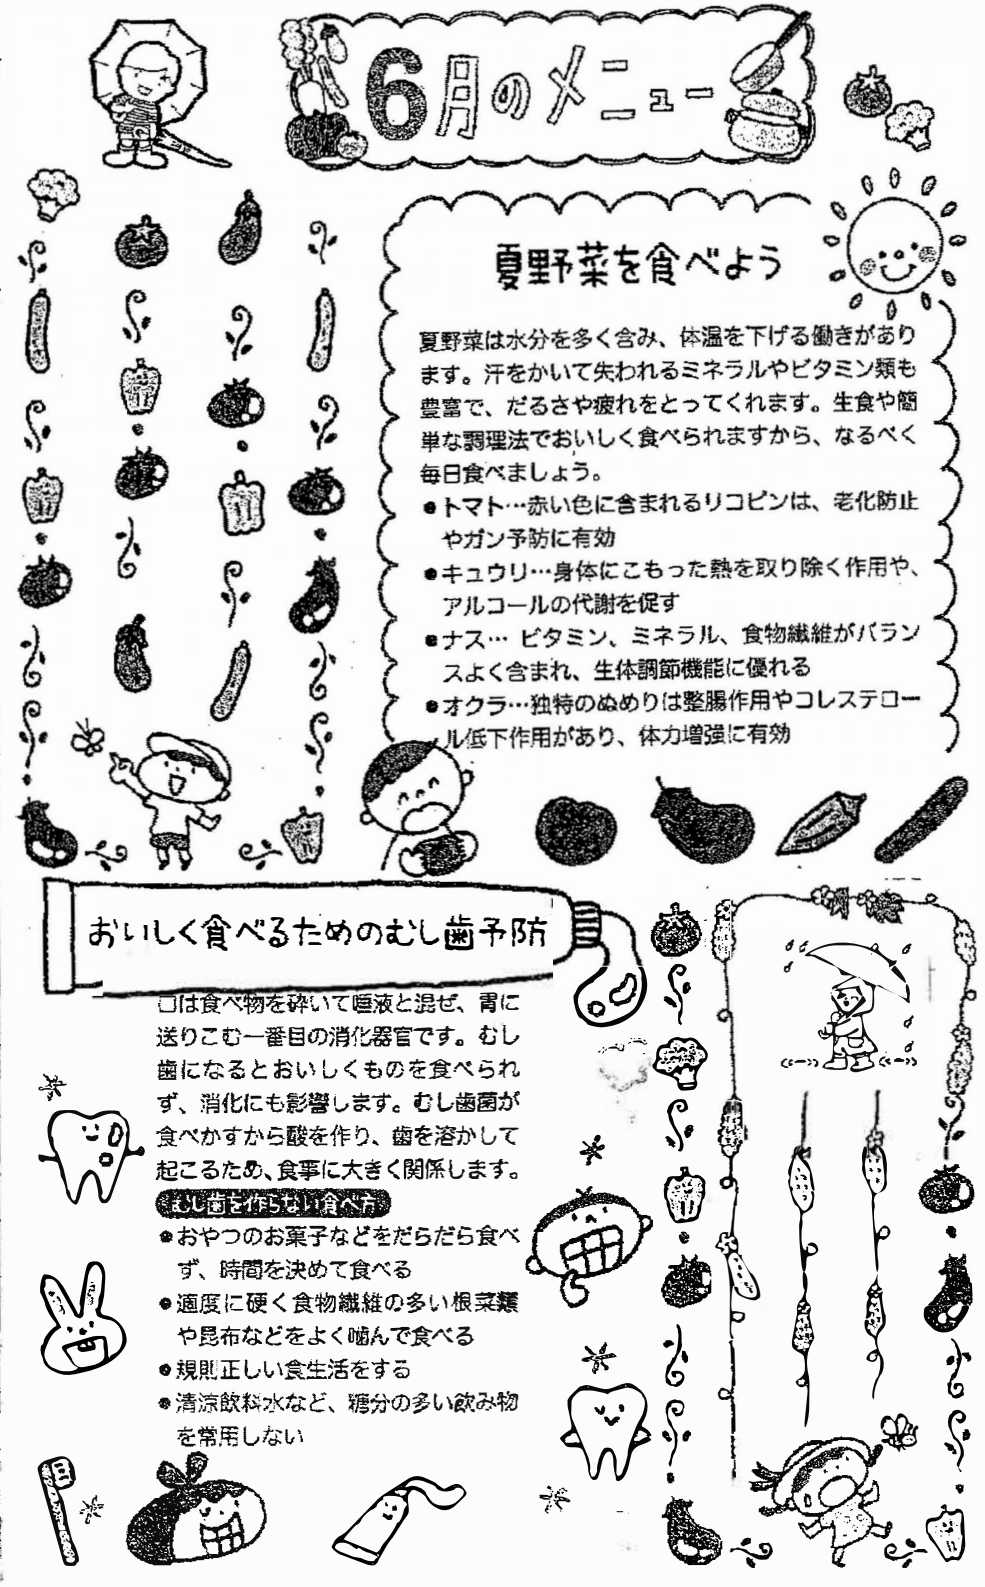 6月のメニュー
夏野菜を食べよう
夏野菜は水分を多く含み、体温を下げる働きがあり
ます。汗をかいて失われるミネラルやビタミン類も
豊富で、だるさや疲れをとってくれます。生食や簡
単な調理法でおいしく食べられますから、なるべく
毎日食べましょう。
●トマト…赤い色に含まれるリコピンは、老化防止
やガン予防に有効
●キュウリ…身体にこもった熱を取り除く作用や、
アルコールの代謝を促す
●ナス… ビタミン、ミネラル、食物繊維がバラン
スよく含まれ、生体調節機能に優れる
●オクラ…独特のぬめりは整腸作用やコレステロー
ル低下作用があり、体力増強に有効
おいしく食べるためのむし歯予防
口は食べ物を砕いて唾液と混ぜ、胃に
送りこむ一番目の消化器官です。むし
歯になるとおいしくものを食べられ
ず、消化にも影響します。むし歯菌が
食べかすから酸を作り、歯を溶かして
起こるため、食事に大きく関係します。
むし歯を作らない食べ方
●おやつのお菓子などをだらだら食べ
ず、時間を決めて食べる
●適度に硬く食物繊維の多い根菜類
や昆布などをよく噛んで食べる
●規則正しい食生活をする
●清涼飲料水など、糖分の多い飲み物
を常用しない